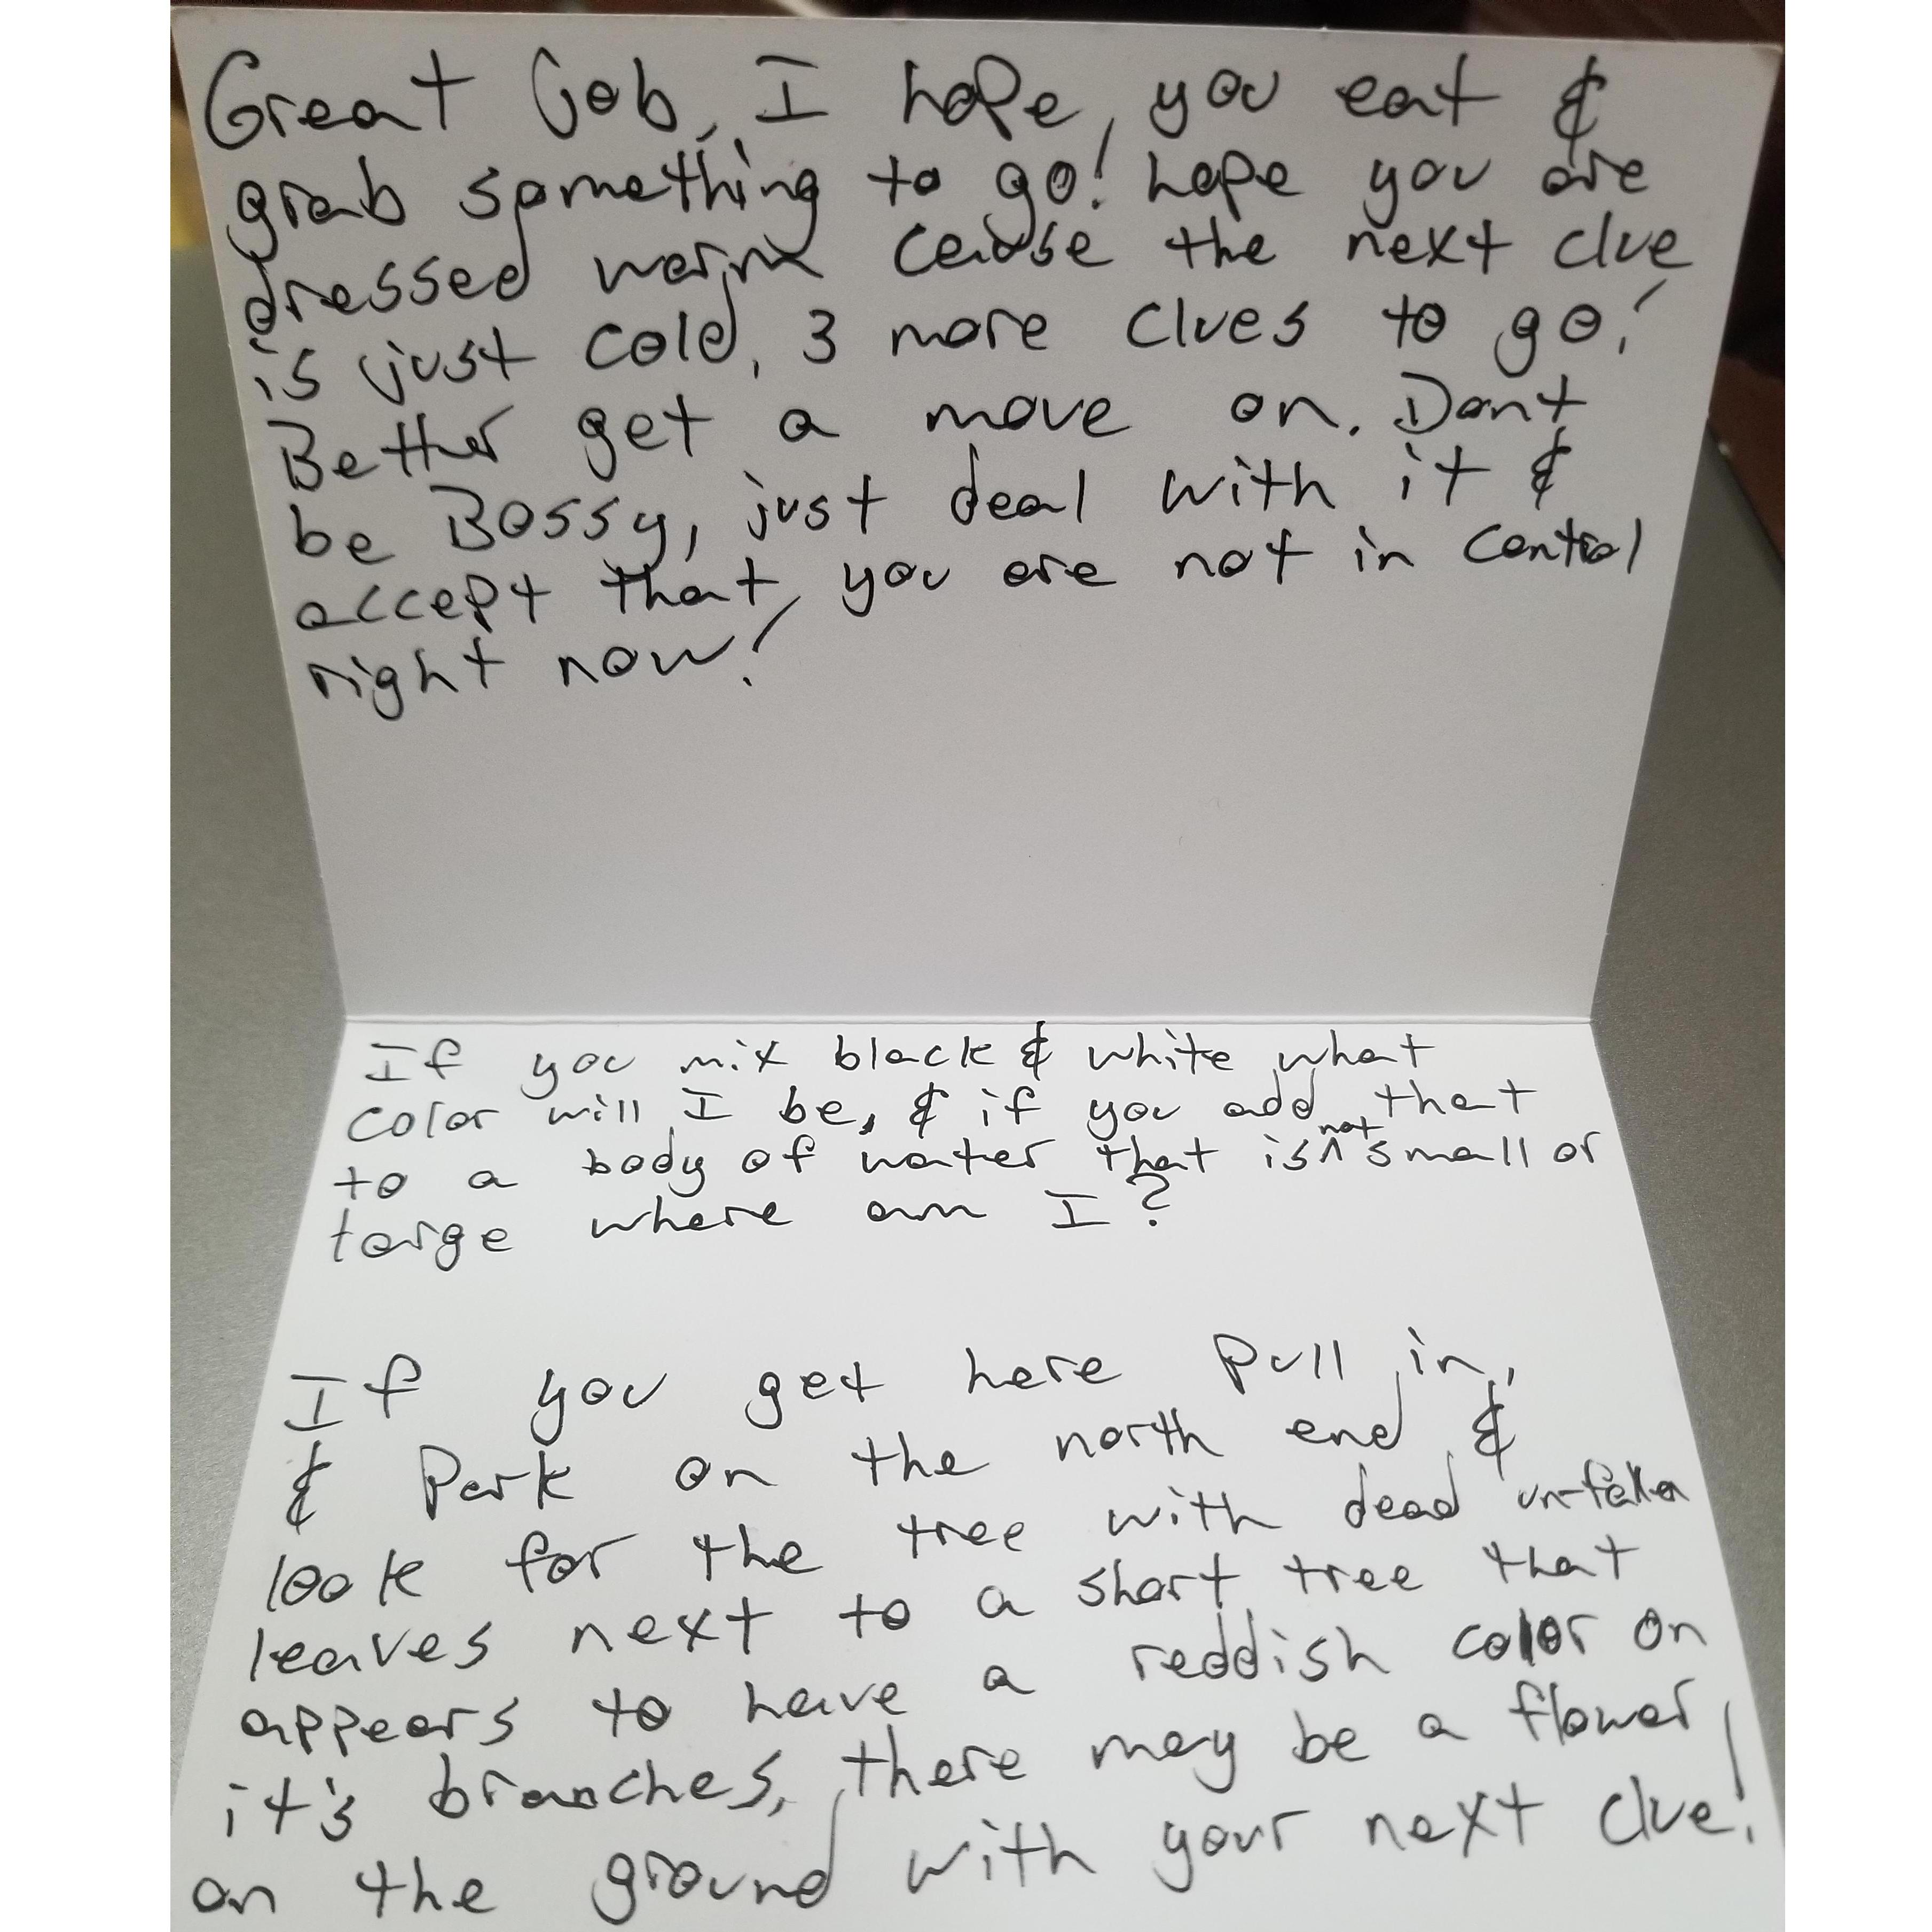 Great Job, I hope you eat &
grab something to go! hope you are
dressed warm cause the next clue
is just cold, 3 more clues to go!
Better get a move on. Dont
be Bossy, just deal with it &
accept that you are not in control
right now!
If you mix black & white what
color will I be, & if you add that
to a body of water that is not small or
large where am I?
If you get here Pull in,
& Park on the north end &
look for the tree with dead un-fallen
leaves next to a short tree that
appears to have a reddish color on
it's branches, there may be a flower
on the ground with your next clue!